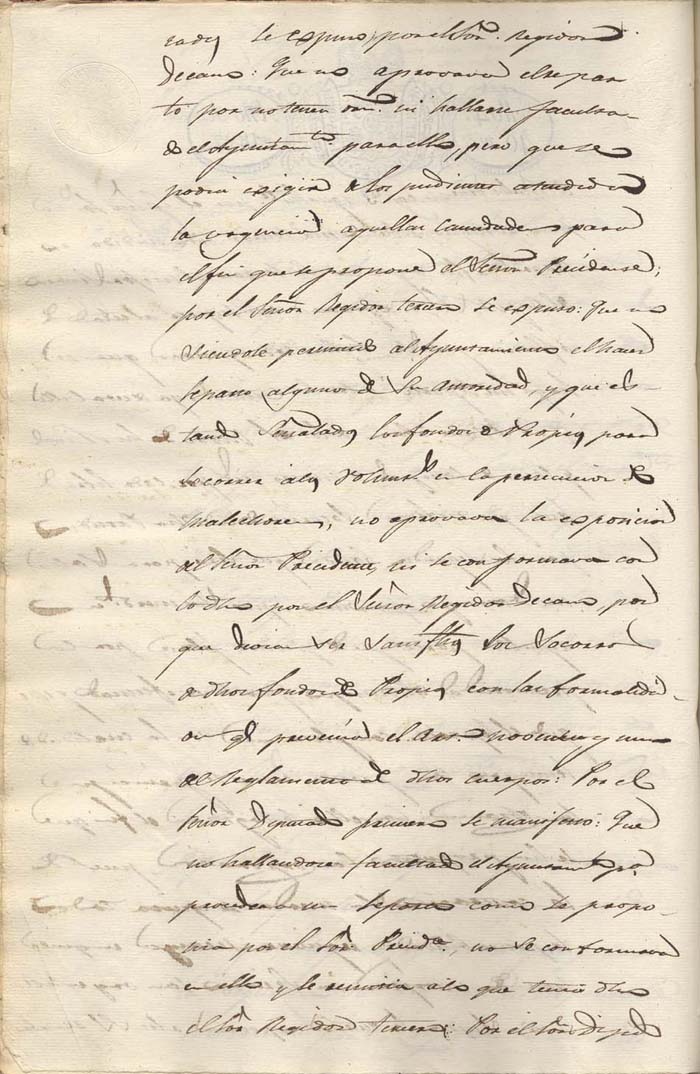 se expuso por el Sōr. Regidor
Decano: Que no aprovava el repar
to por no tener orn. ni hallarse faculta-
do el Ayuntamto. para ello, pero que se
podia exigir de los pudientes atendida
la urgencia aquellas cantidades para
el fin que se propone el Señor Presidente;
por el Señor Regidor tercero se expuso: Que no
siendole permitido al Ayuntamiento el hacer
reparto alguno de su autoridad, y que es-
tando señalados los fondos de Propios para
socorrer a los Volunts. en la persecucion de
malechores, no aprovava la exposicion
del Señor Presidente, ni se conformava con
lo dho por el Señor Regidor Decano, por
que devian ser satisfhos los socorros
de dhos fondos de Propios con las formalida-
des qe previene el Art. noventa y uno
del Reglamento de dhos cuerpos: Por el
Señor Diputado primero se manifesto: Que
no hallandose facultado el Ayuntamto pa.
proceder a un reparto como se propo-
nia por el Sōr. Presidte., no se conformava
en ello y se remitia a lo que tenia dho
el Sōr Regidor tercero: Por el Sōr Dipdo